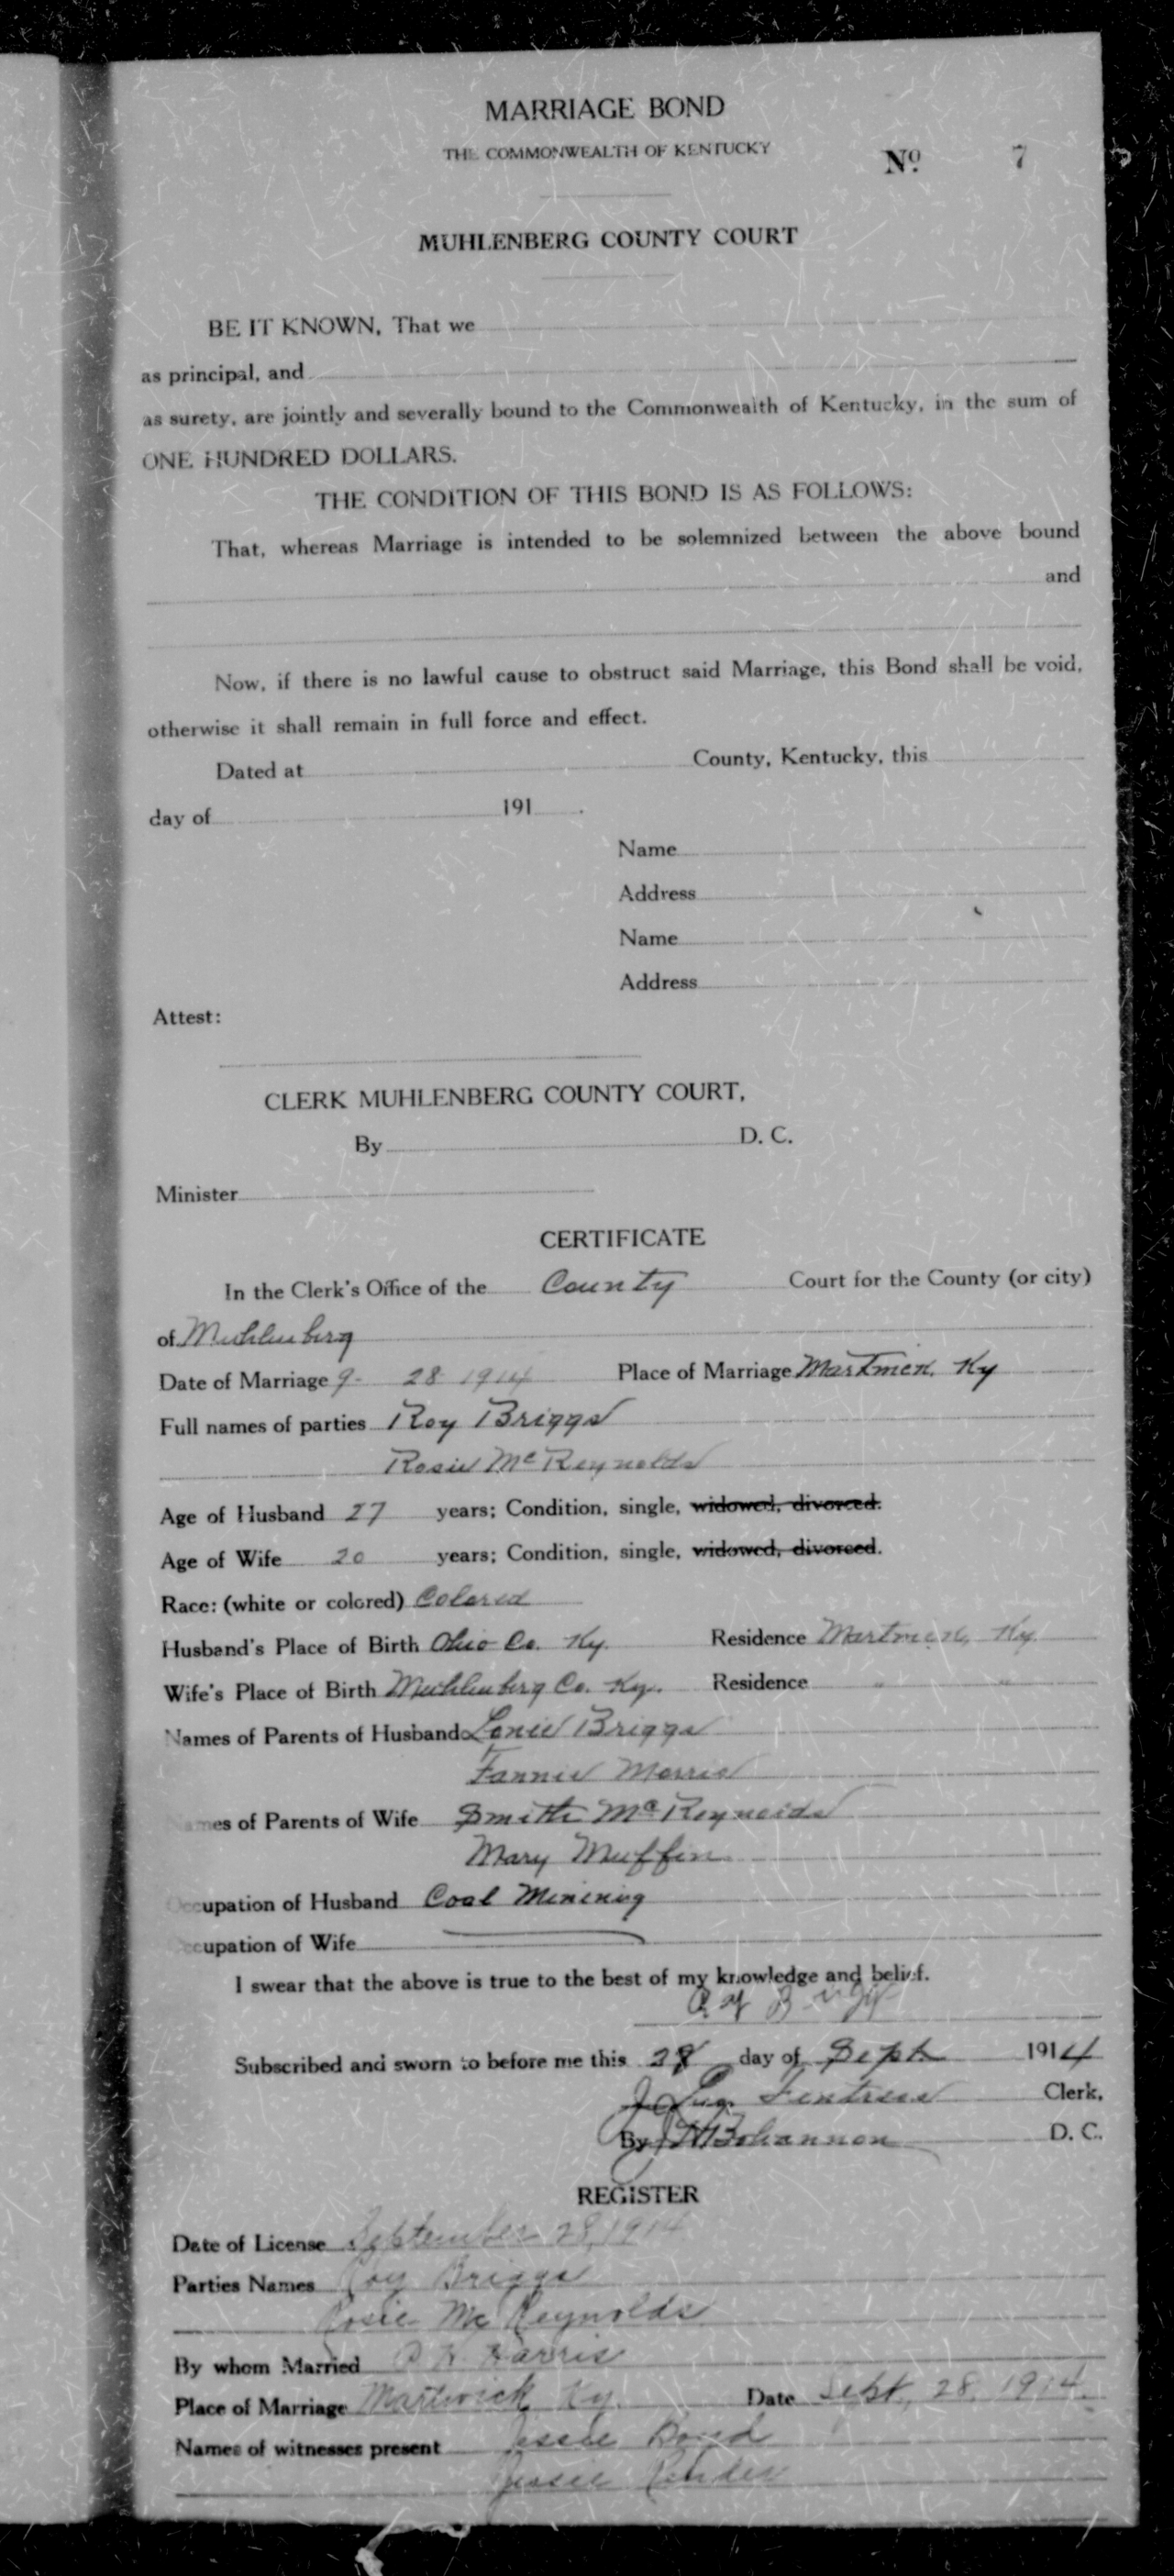 MARRIAGE BOND
THE COMMONWEALTH OF KENTUCKY
No. 7
MUHLENBERG COUNTY COURT
BE IT KNOWN, That we
as principal, and
as surety, are jointly and severally bound to the Commonwealth of Kentucky, in the sum of
ONE HUNDRED DOLLARS.
THE CONDITION OF THIS BOND IS AS FOLLOWS:
That, whereas Marriage is intended to be solemnized between the above bound
and
Now, if there is no lawful cause to obstruct said Marriage, this Bond shall be void,
otherwise it shall remain in full force and effect.
Dated at County, Kentucky, this
day of 191 .
Name
Address
Name
Address
Attest:
CLERK MUHLENBERG COUNTY COURT,
By D. C.
Minister
CERTIFICATE
In the Clerk's Office of the County Court for the County (or city)
of Muhlenberg
Date of Marriage 9- 28 1914 Place of Marriage Martwick, Ky
Full names of parties Roy Briggs
Rosie McReynolds
Age of Husband 27 years; Condition, single, widowed, divorced.
Age of Wife 20 years; Condition, single, widowed, divorced.
Race: (white or colored) Colored
Husband's Place of Birth Ohio Co. Ky. Residence Martwick, Ky.
Wife's Place of Birth Muhlenberg Co. Ky. Residence " "
Names of Parents of Husband Lonie Briggs
Fannie Morris
Names of Parents of Wife Smith McReynolds
Mary Muffin
Occupation of Husband Coal Mining
Occupation of Wife
I swear that the above is true to the best of my knowledge and belief.
Subscribed and sworn to before me this 28 day of Sept. 1914
Fentress Clerk.
By Bohannon D. C.
REGISTER
Date of License September 28, 1914
Parties Names Roy Briggs
Rosie McReynolds
By whom Married Harris
Place of Marriage Martwick Ky. Date Sept. 28, 1914.
Names of witnesses present Jessie Bond
Jessie Render